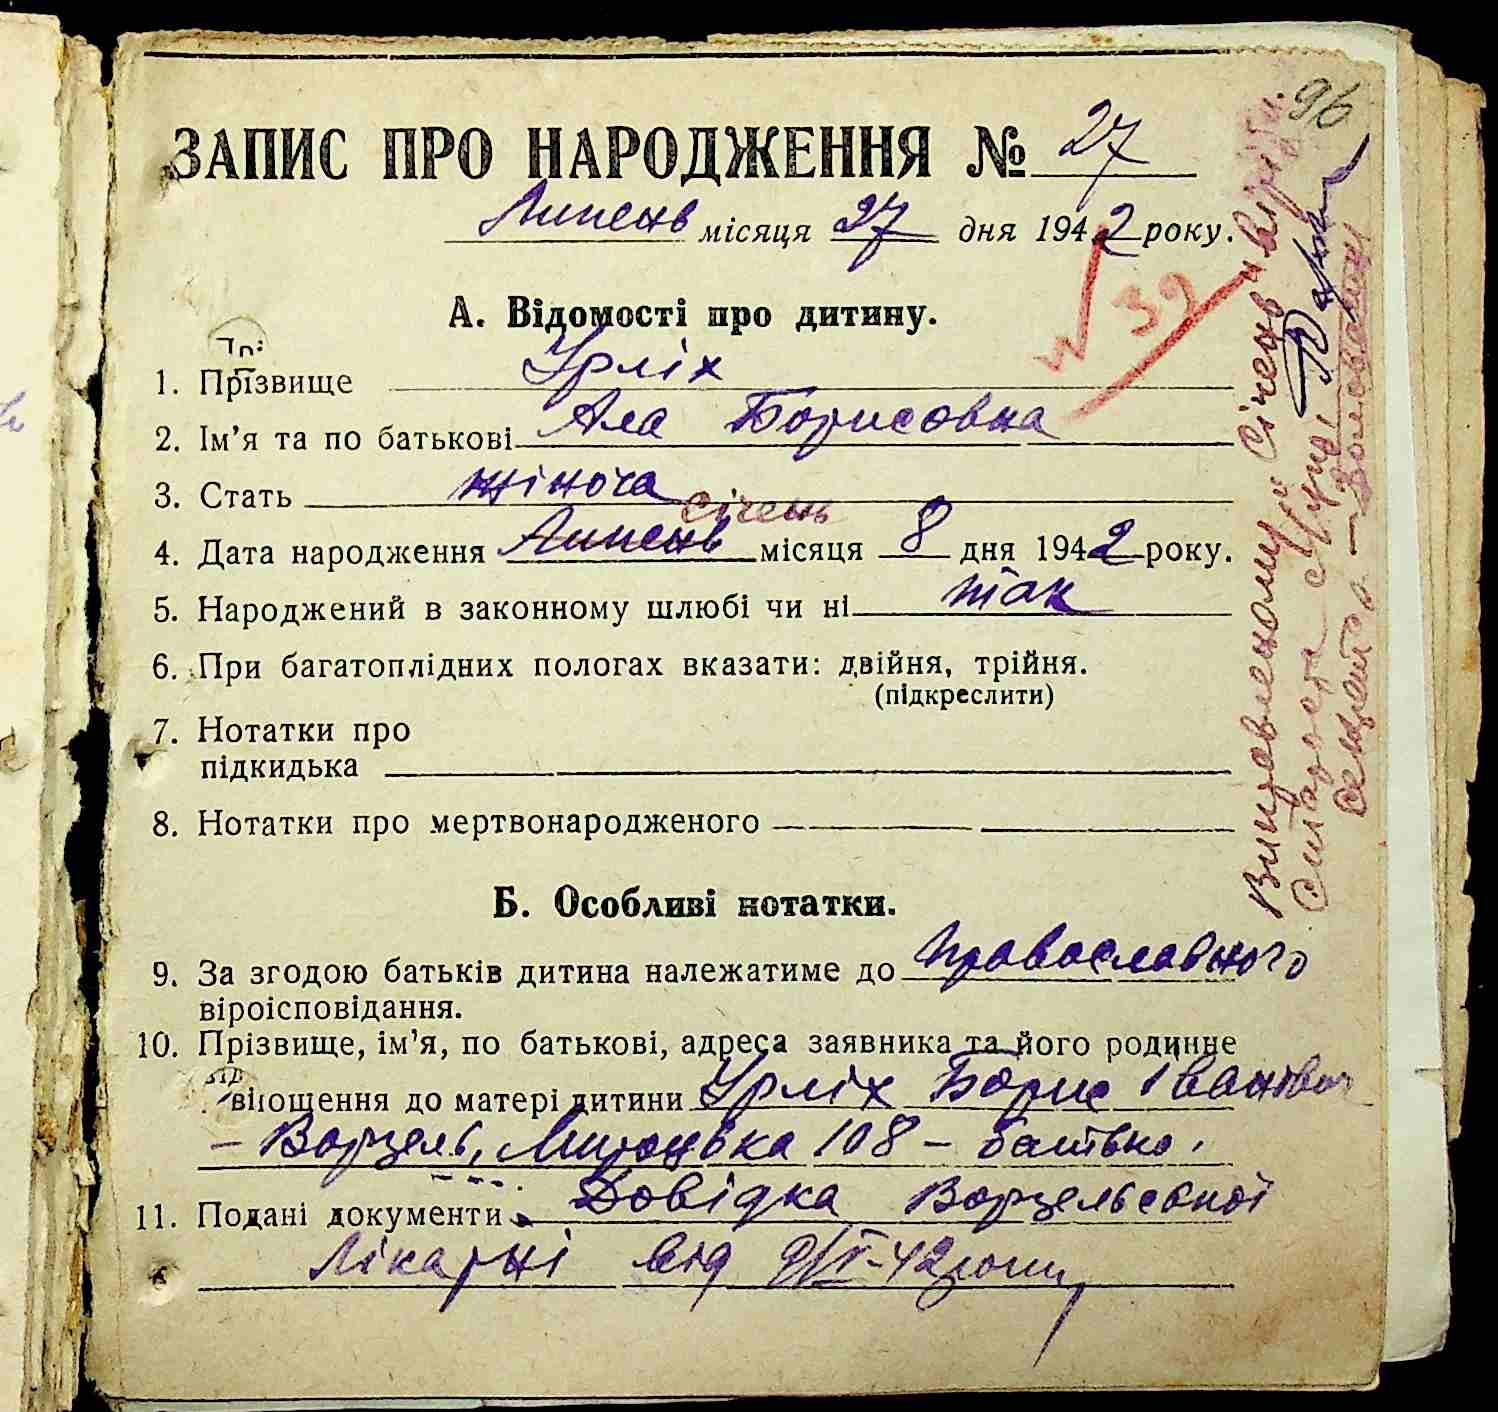 96
ЗАПИС ПРО НАРОДЖЕННЯ № 27
Липень місяця 27 дня 1942 року.
39
А. Відомості про дитину.
1. Прізвище Урліх
2. Ім’я та по батькові Ала Борисовна
3. Стать жіноча
січень
4. Дата народження Липень місяця 8 дня 1942 року.
5. Народжений в законному шлюбі чи ні так
6. При багатоплідних пологах вказати: двійня, трійня.
(підкреслити)
7. Нотатки про
підкидька
8. Нотатки про мертвонародженого
Б. Особливі нотатки.
9. За згодою батьків дитина належатиме до православного
віроісповідання.
10. Прізвище, ім’я, по батькові, адреса заявника та його родинне
відношення до матері дитини Урліх Борис Іванович
– Ворзель, 108 – батько.
11. Подані документи Довідка Ворзельської
лікарні від 42 року
Виправленому "Січень" вірити.
Староста с/Управи
Секретар –